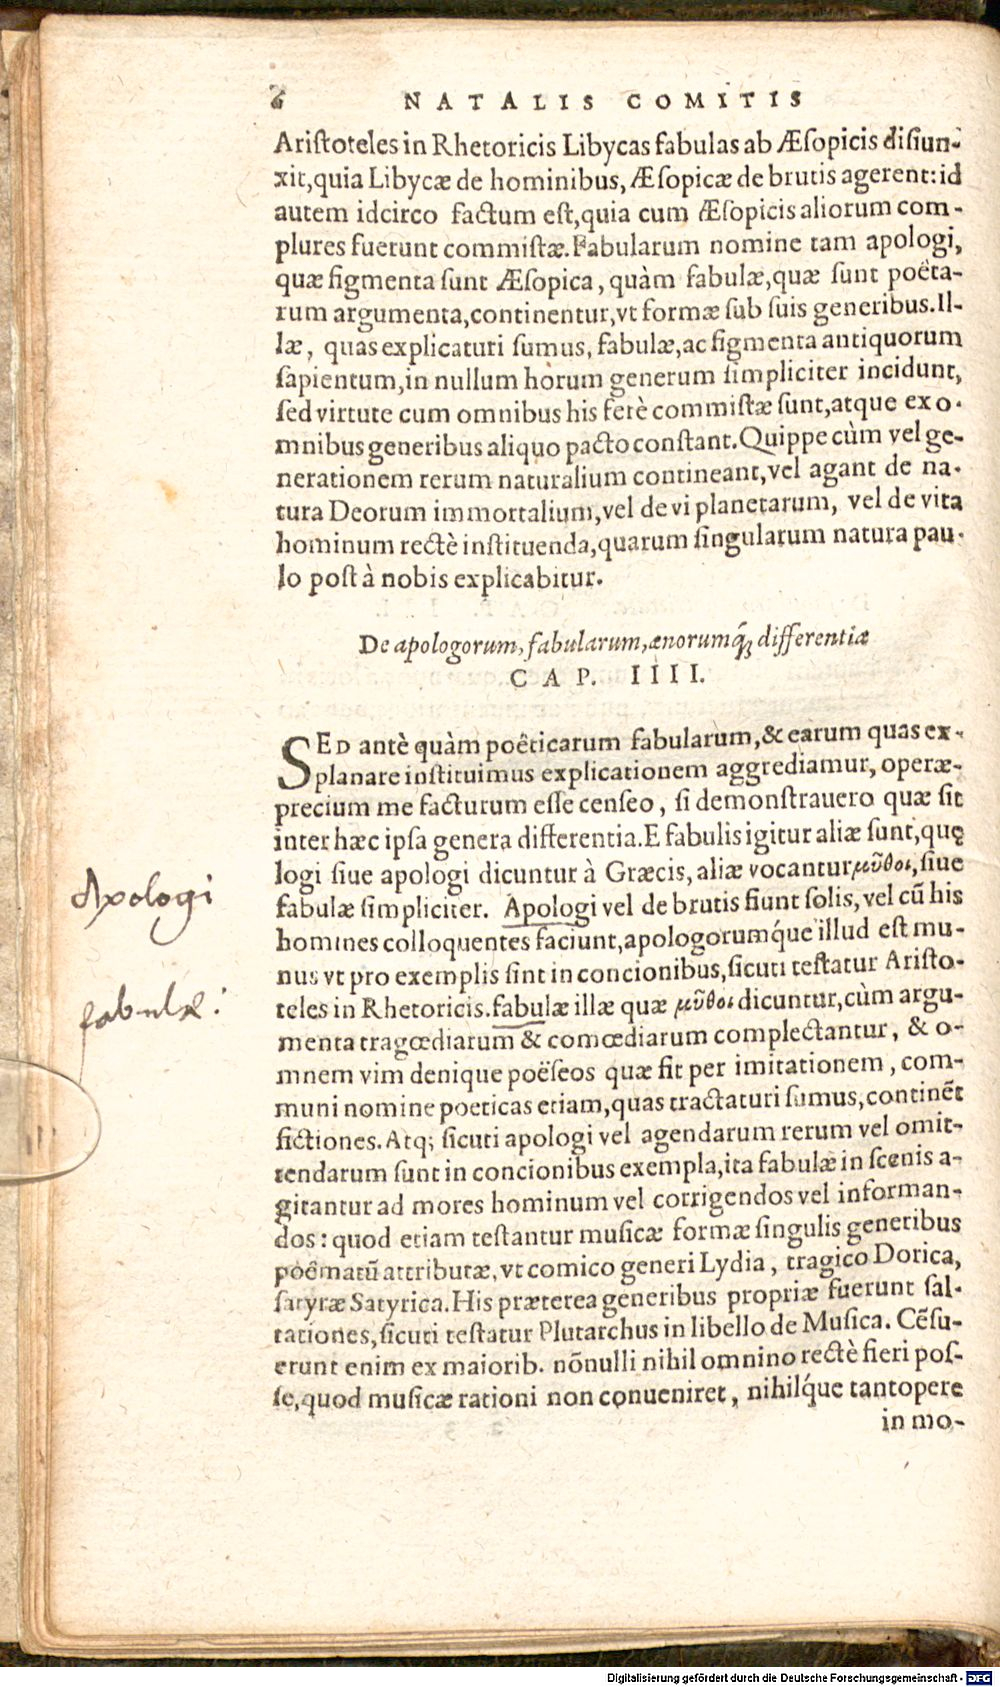 6 NATALIS COMITIS
Aristoteles in Rhetoricis Libycas fabulas ab Æsopicis disiun-
xit, quia Libycæ de hominibus, Æsopicæ de brutis agerent: id
autem idcirco factum est, quia cum Æsopicis aliorum com-
plures fuerunt commistæ. Fabularum nomine tam apologi,
quæ figmenta sunt Æsopica, quàm fabulæ, quæ sunt poëta-
rum argumenta, continentur, vt formæ sub suis generibus. Il-
læ, quas explicaturi sumus, fabulæ, ac figmenta antiquorum
sapientum, in nullum horum generum simpliciter incidunt,
sed virtute cum omnibus his ferè commistæ sunt, atque ex o-
mnibus generibus aliquo pacto constant. Quippe cùm vel ge-
nerationem rerum naturalium contineant, vel agant de na-
tura Deorum immortalium, vel de vi planetarum, vel de vita
hominum rectè instituenda, quarum singularum natura pau-
lo pòst à nobis explicabitur.
De apologorum, fabularum, ænorumq́; differentiæ
CAP. IIII.
SED antè quàm poêticarum fabularum, & earum quas ex-
planare instituimus explicationem aggrediamur, operæ-
precium me facturum esse censeo, si demonstrauero quæ sit
inter hæc ipsa genera differentia. E fabulis igitur aliæ sunt, quę
logi siue apologi dicuntur à Græcis, aliæ vocantur μῦθοι, siue
fabulæ simpliciter. Apologi vel de brutis fiunt solis, vel cū his
homines colloquentes faciunt, apologorumq́ue illud est mu-
nus vt pro exemplis sint in concionibus, sicuti testatur Aristo-
teles in Rhetoricis. fabulæ illæ quæ μῦθοι dicuntur, cùm argu-
menta tragœdiarum & comœdiarum complectantur, & o-
mnem vim denique poëseos quæ fit per imitationem, com-
muni nomine poeticas etiam, quas tractaturi sumus, continēt
fictiones. Atq; sicuti apologi vel agendarum rerum vel omit-
tendarum sunt in concionibus exempla, ita fabulæ in scenis a-
gitantur ad mores hominum vel corrigendos vel informan-
dos: quod etiam testantur musicæ formæ singulis generibus
poêmatū attributæ, vt comico generi Lydia, tragico Dorica,
satyræ Satyrica. His præterea generibus propriæ fuerunt sal-
tationes, sicuti testatur Plutarchus in libello de Musica. Cēsu-
erunt enim ex maiorib. nōnulli nihil omnino rectè fieri pos-
se, quod musicæ rationi non conueniret, nihilq́ue tantopere
in mo-
Apologi
fabulæ:
Digitalisierung gefördert durch die Deutsche Forschungsgemeinschaft - DFG